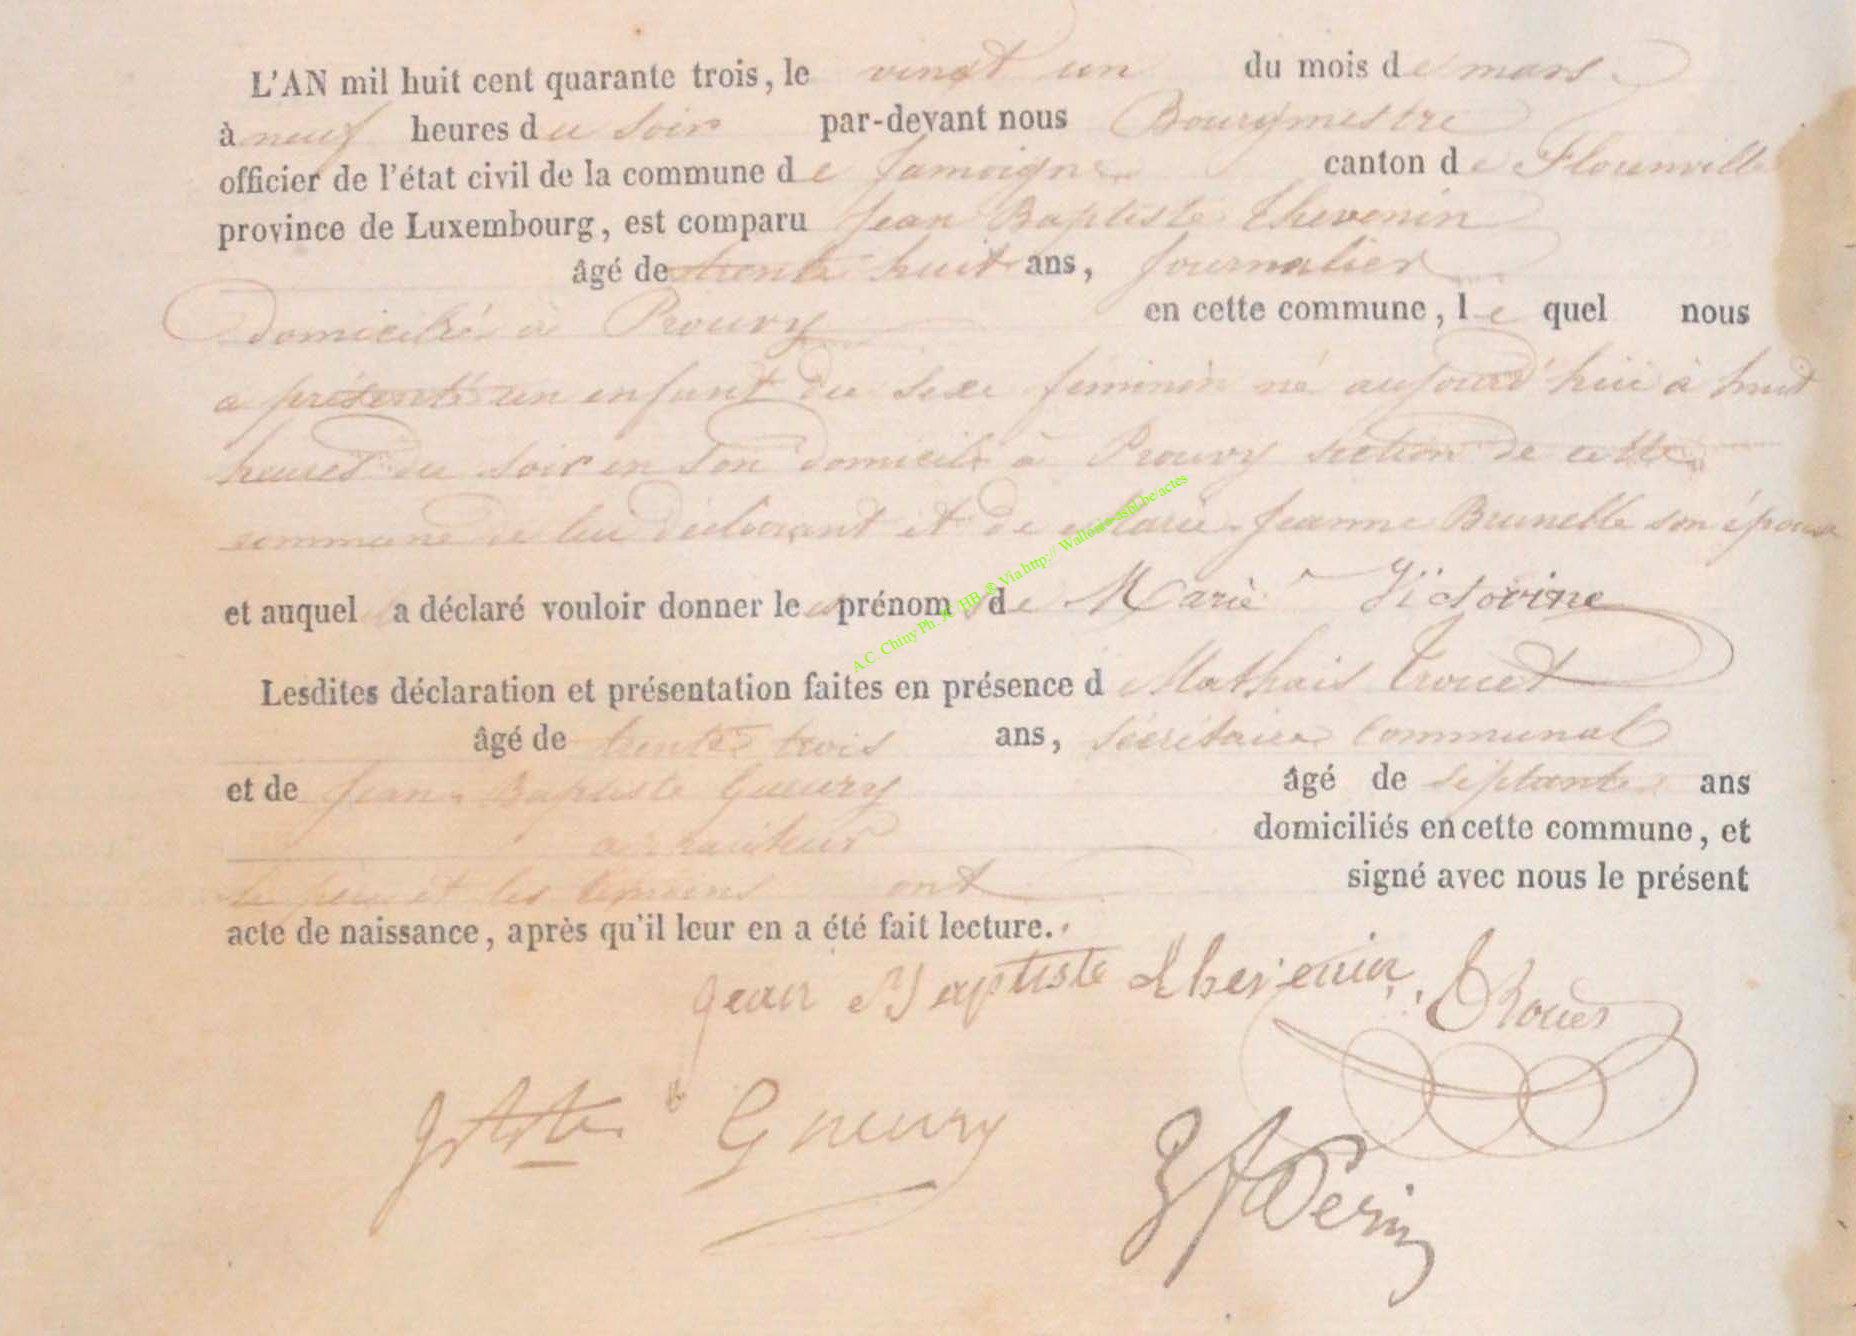 L'AN mil huit cent quarante trois, le vingt un du mois de mars
à neuf heures du soir par-devant nous Bourgmestre
officier de l'état civil de la commune de Jamoigne canton de Florenville
province de Luxembourg, est comparu Jean Baptiste Thevenin
âgé de trente huit ans, journalier
domicilié à Prouvy en cette commune, le quel nous
a présenté un enfant du sexe feminin né aujourd'hui à huit
heures du soir en son domicile à Prouvy section de cette
commune de lui déclarant et de Marie Jeanne Brunelle son épouse
et auquel a déclaré vouloir donner les prénoms de Marie Victorine
Lesdites déclaration et présentation faites en présence d Mathais Trouet
âgé de trente trois ans, secrétaire communal
et de Jean Baptiste Gueury âgé de septante ans
domiciliés en cette commune, et
le père et les témoins ont signé avec nous le présent
acte de naissance, après qu'il leur en a été fait lecture.
Jean Baptiste Thevenin Trouet
Gueury
Perin
A.C. Chiny Ph. X. HB ® Via http:// Wallonie-aspl.be/actes